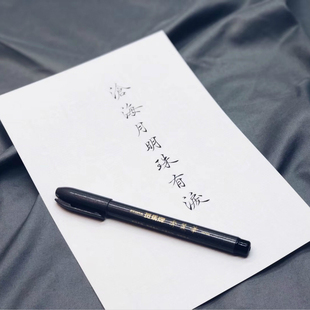 沧海月明珠有淚